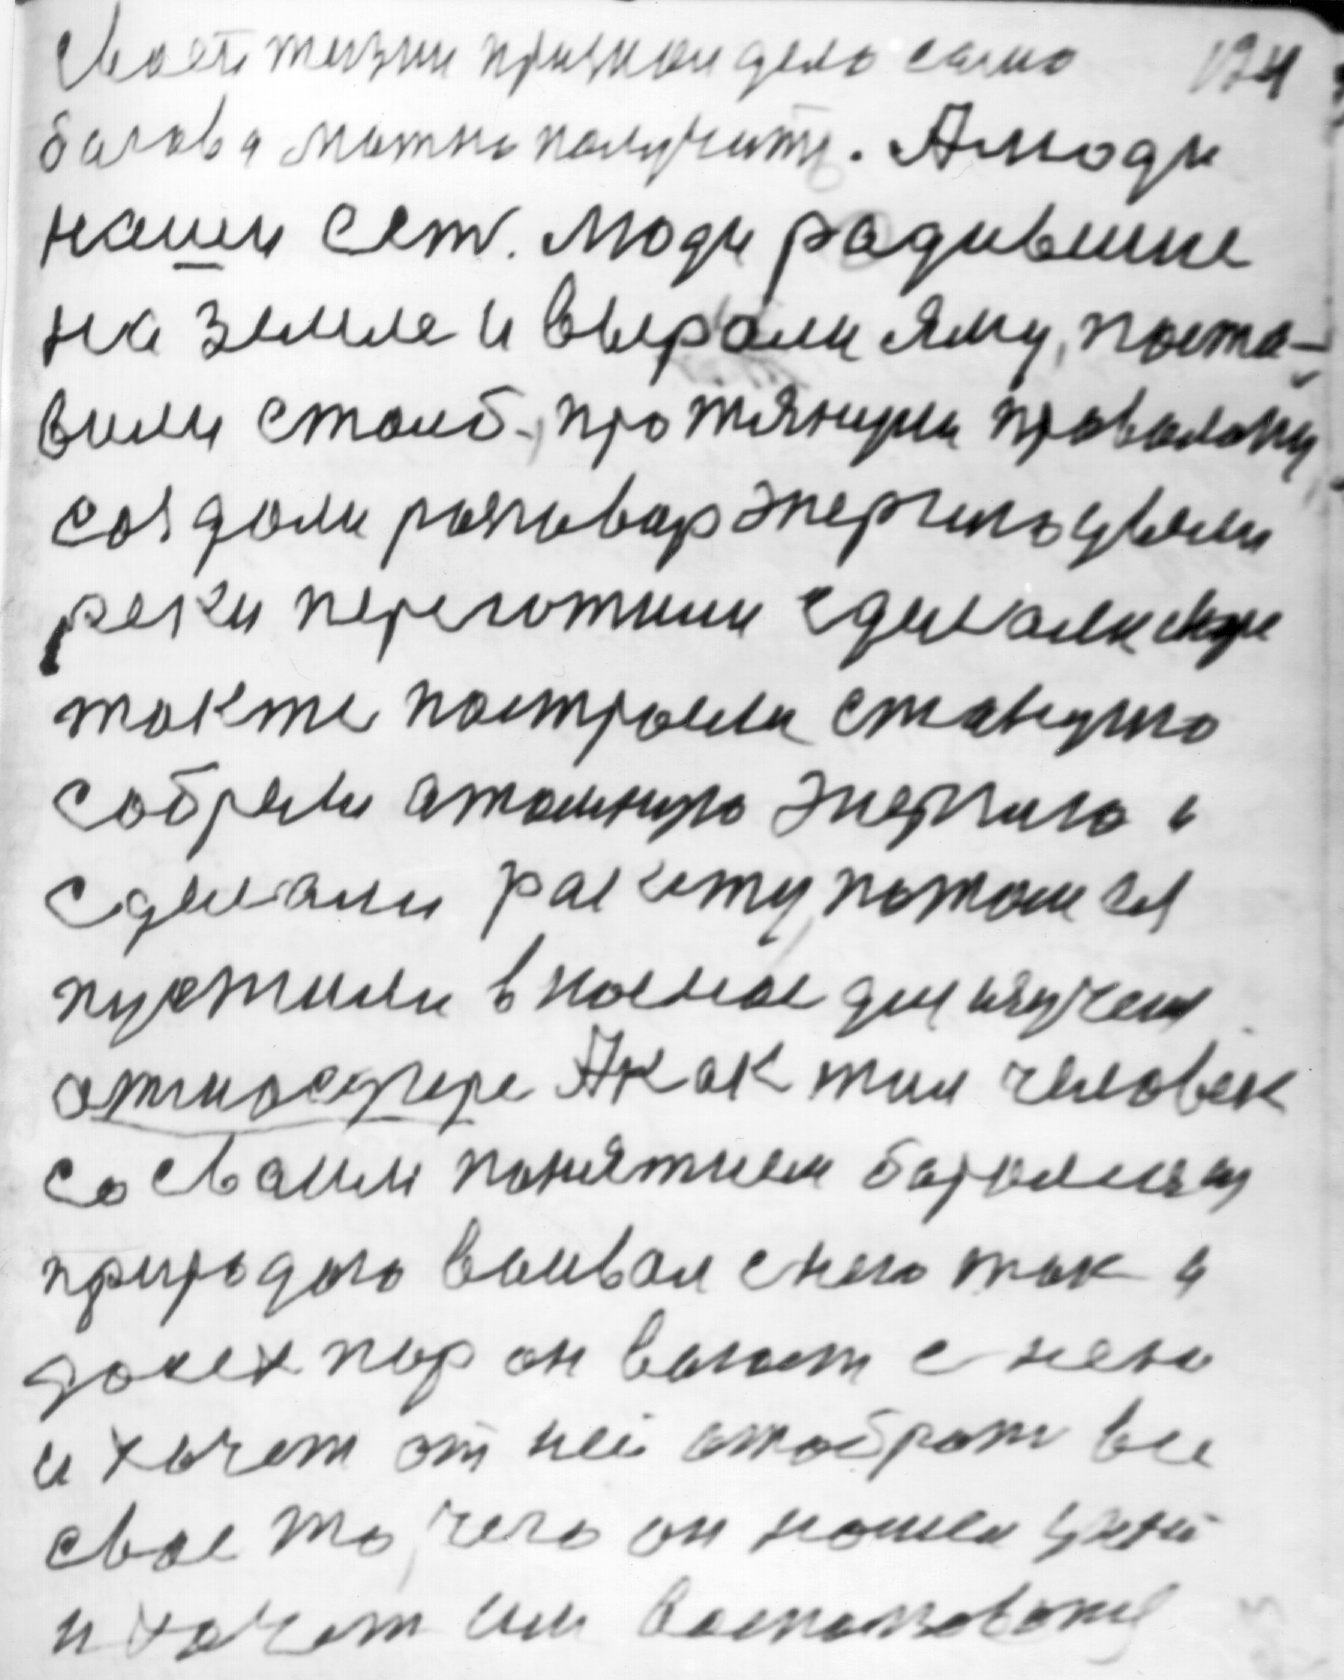 своей жизни признал дело само 124
балавa можно получить. А люди
наши есть. Люди радившие
на земле и вырыли яму, поста-
вили столб, протянули праволоку,
создали разговар энергию узяли
реки перегатили сделали
также построели станцию
собрали атомную энергию и
сделали ракету, потом ея
пустили в космос для изучения
атмосфере А как жил человек
со своим понятием боролся з
природою воивал с нею так и
досех пор он воюет с нею
и хочет от ней отобрать все
свое то, чего он нашел у ней
и хочет им воспользоваться